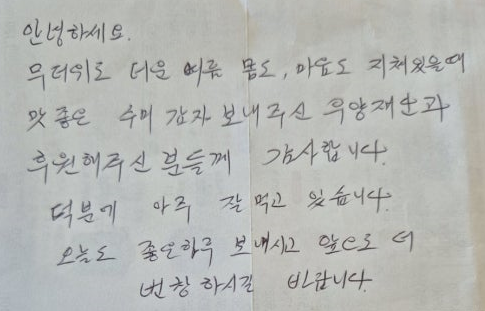 안녕하세요.
무더위로 더운 여름 몸도, 마음도 지쳐있을때
맛 좋은 수미 감자 보내주신 우양재단과
후원해주신 분들께 감사합니다.
덕분에 아주 잘 먹고 있습니다.
오늘도 좋은하루 보내시고 앞으로 더
번창하시길 바랍니다.